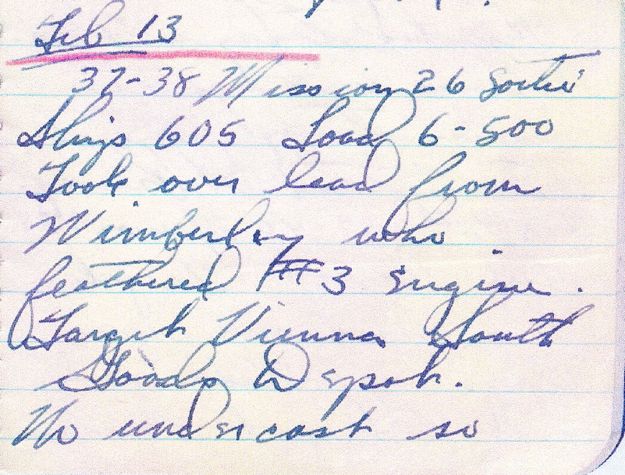 Feb 13
37-38 Mission 26 Sortie
Ship 605 Load 6-500
Took over lead from
Wimberley who
feathered #3 Engine.
Target Vienna South
Goods Depot.
No undercast so